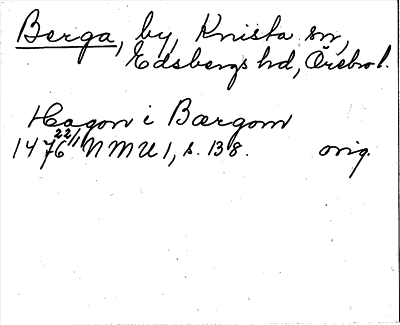 Berga, by, Knista sn,
Edsbergs hd, Örebro l.
Hagon i Bærgom
1476 22/1 NMU 1, s. 138. orig.